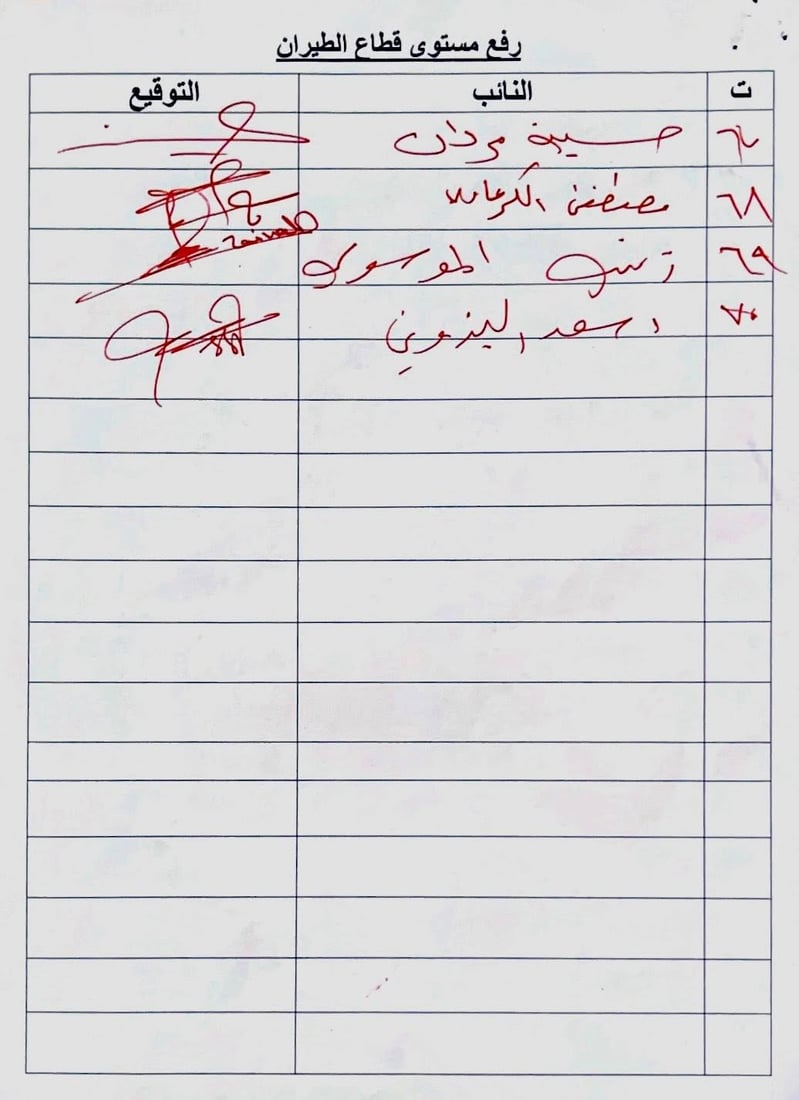 رفع مستوى قطاع الطيران
ت النائب التوقيع
٦٧ حسيبة مردان
٦٨ مصطفى الكرعاوي
٦٩ زينب الموسوي Zainab
٧٠ اسعد البزوني